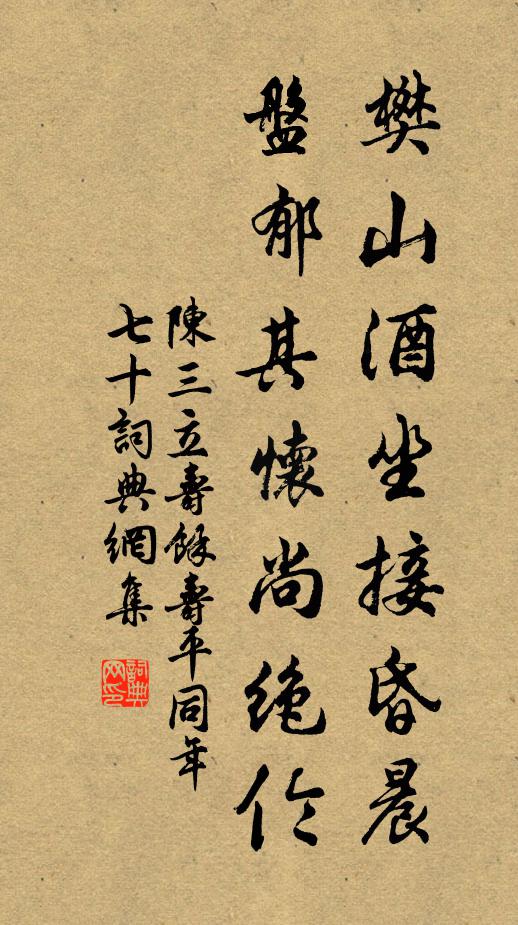 樊山酒坐接昏晨
盤郁其懷尚絶倫
陳三立壽餘壽平同年
七十詞典網集
詞典网印